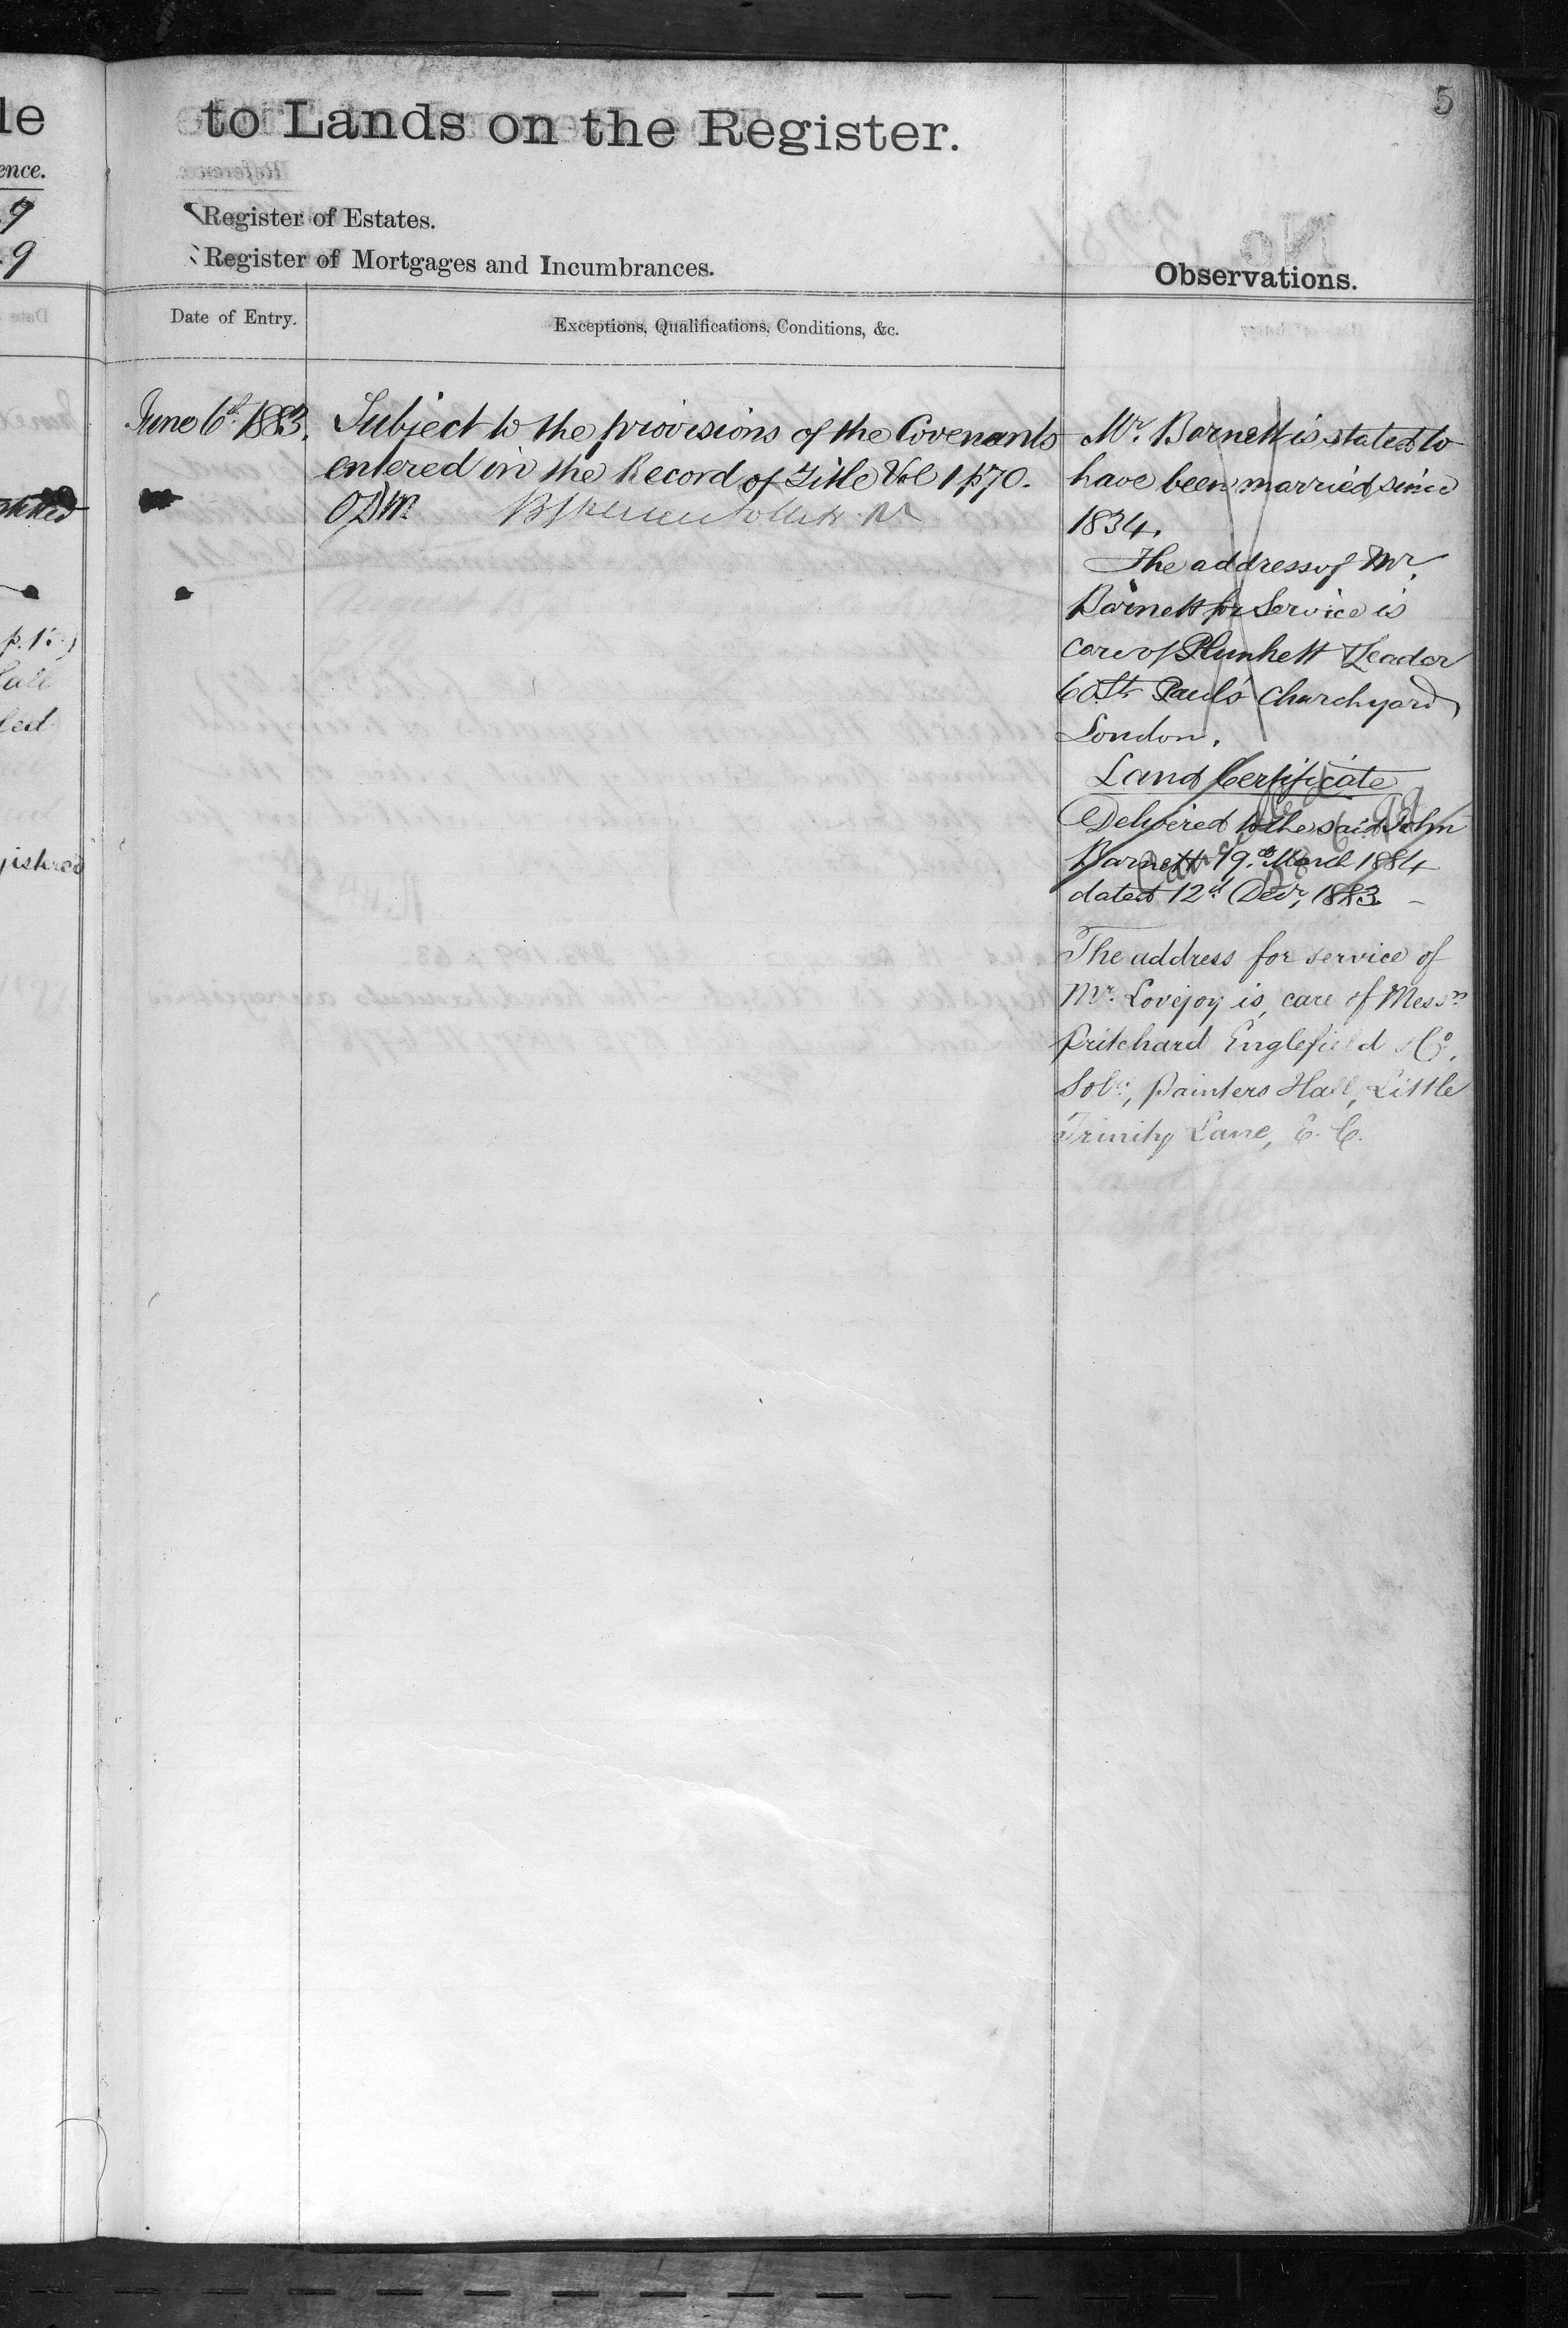 le
ence.
9
.9
p. 1
led
istered
5
to Lands on the Register.
Register of Estates.
Register of Mortgages and Incumbrances.
Observations.
Date of Entry.
Exceptions, Qualifications, Conditions, &c.
June 6th 1883.
Subject to the provisions of the Covenants
entered in the Record of Title Vol 1 p 70.
Mr. Barnett is stated to
have been married since
1834.
The address of Mr
Barnett for Service is
care of Plunkett & Leader
60 St. Paul's Churchyard
London.
Land Certificate
Delivered to the said John
Barnett 19th March 1884
dated 12th Decr, 1883.
The address for service of
Mr. Lovejoy is, care of Messrs
Pritchard Englefield & Co,
Solrs, Painters Hall, Little
Trinity Lane, E. C.